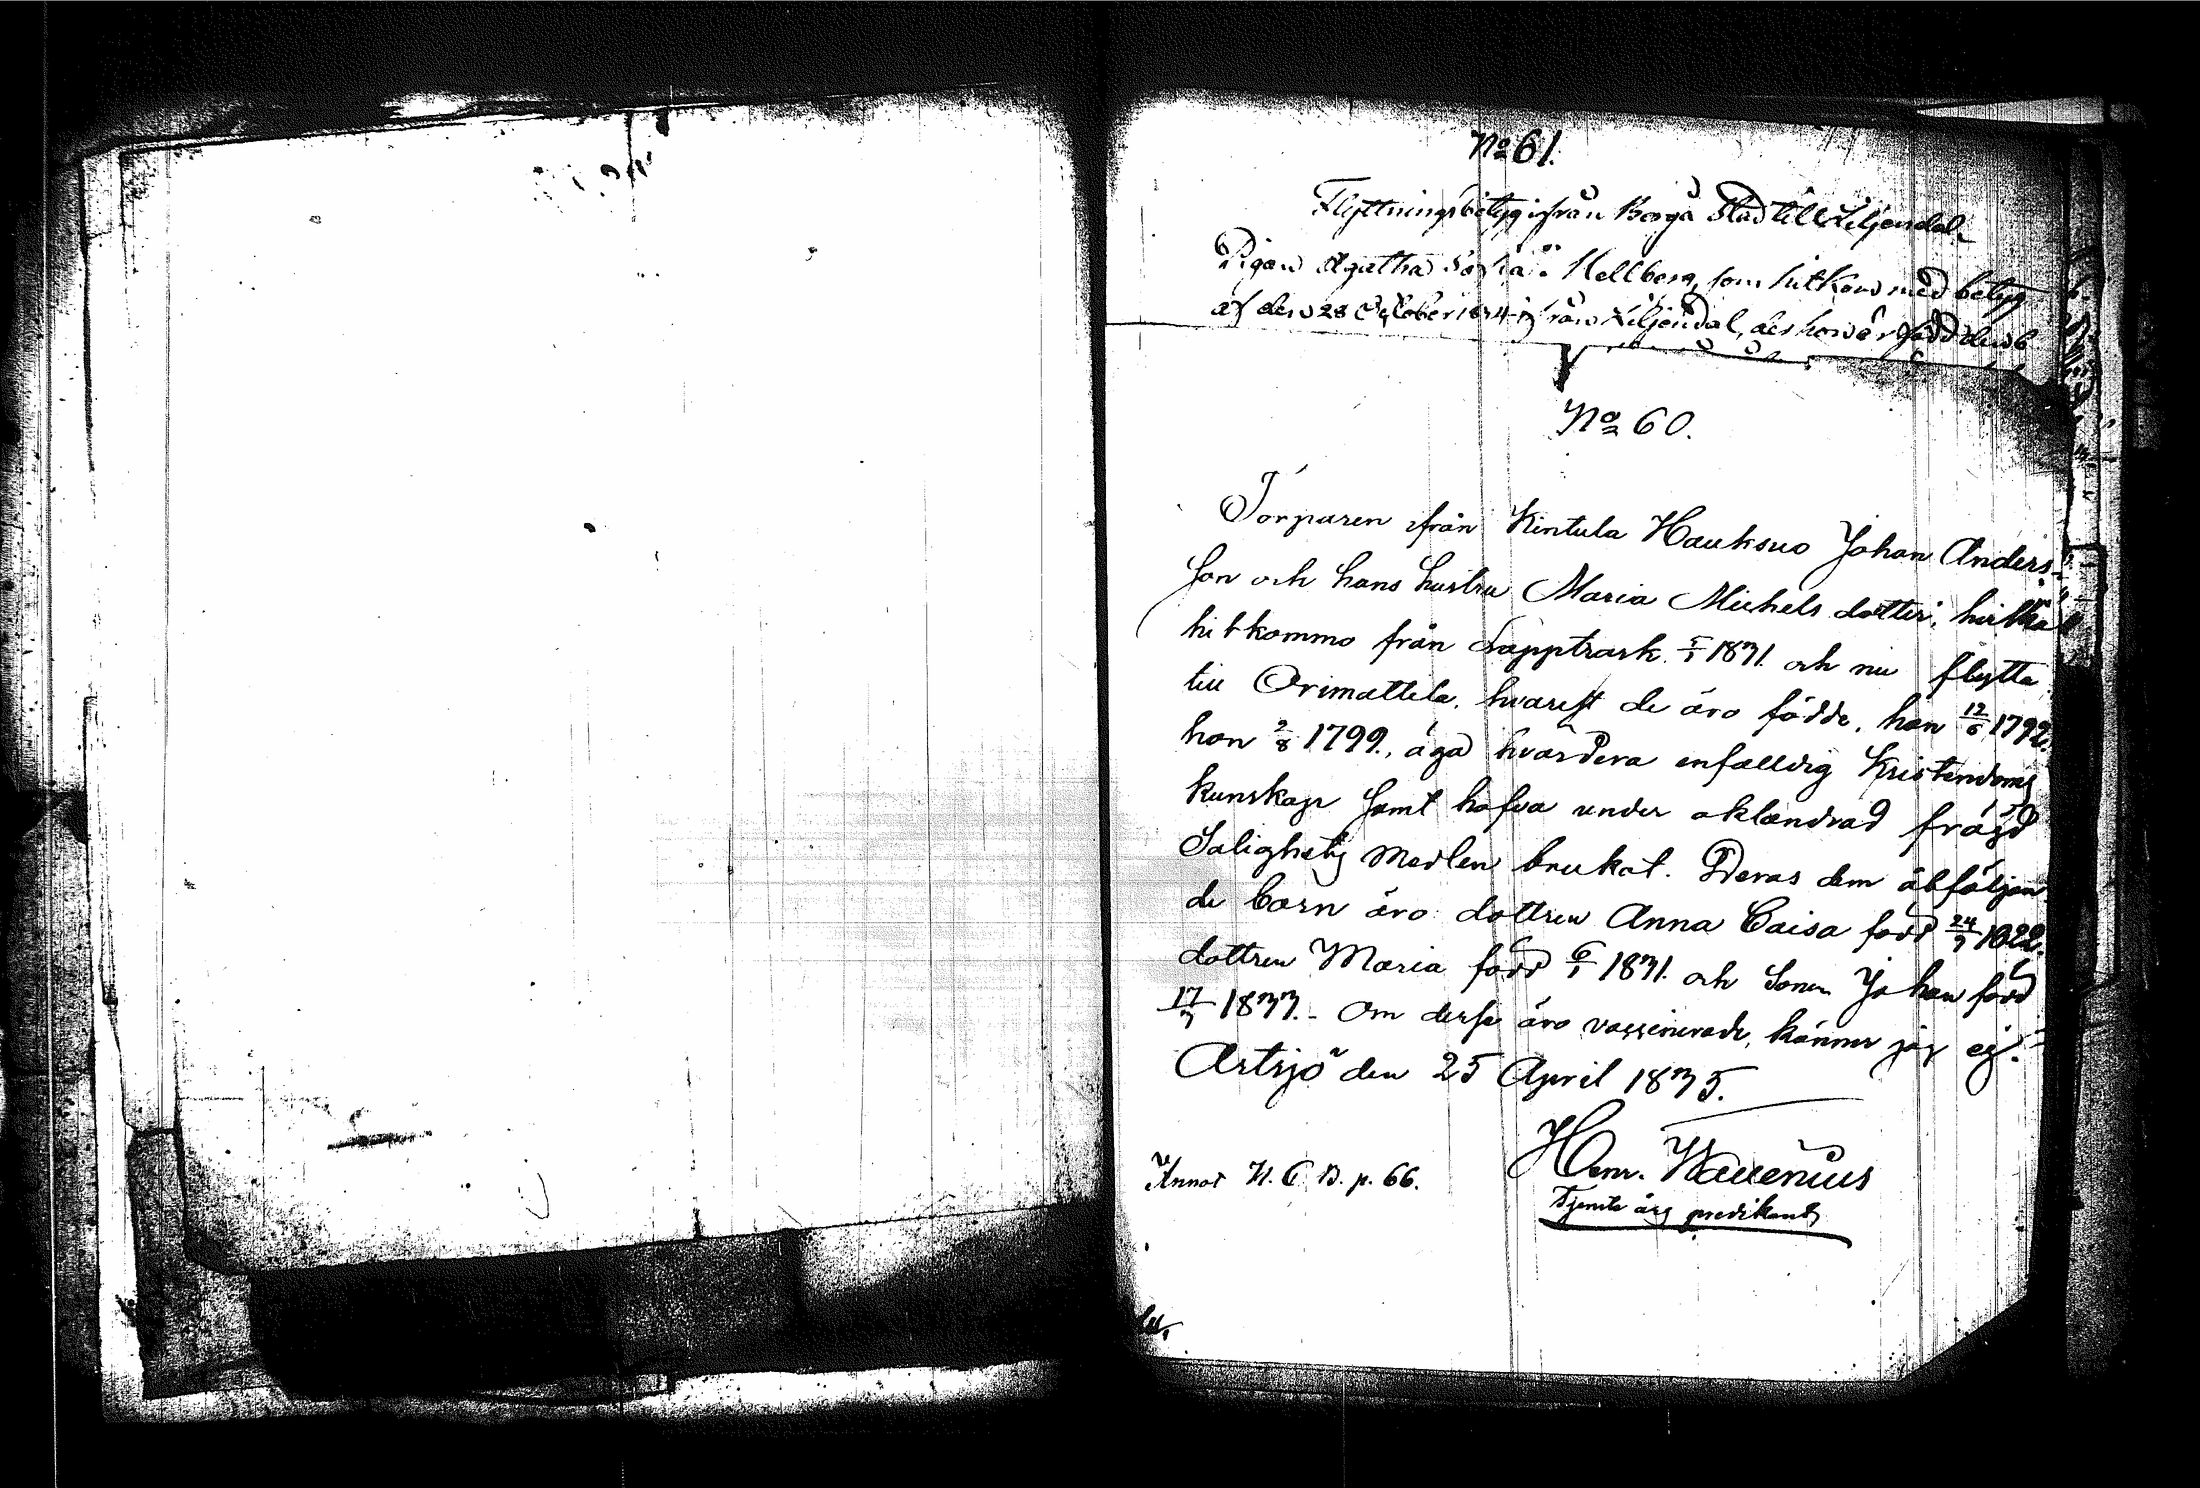 No 61.
Flyttningsbetyg ifrån Borgå Stad till Liljendal.
Pigan Agatha Sofia Hellberg, som hitkom med betyg
af den 28 October 1834 ifrån Liljendal, är född den 6
No 60.
Torparen ifrån Kintula Hauksuo Johan Anders-
son och hans hustru Maria Michels dotter,
hitkommo från Lapptrask 1831. och nu flytta
till Orimattila, hvarest de äro födde, han 12/6 1792.
hon 2/8 1799., äga hvardera enfalldig Kristendoms
kunskap samt hafva under oklandrad frägd
Salighets medlen brukat. Deras dem åtföljan
de barn äro dottren Anna Caisa född 24/7 1822.
dottren Maria född 6/1 1831. och Sonen Johan född
17/7 1833. - Om desse äro vaccinerade, känner jag ej. -
Artsjö den 25 April 1835.
Henr. Wauenius
Tjenste årg predikant
Annot H. C. B. p. 66.